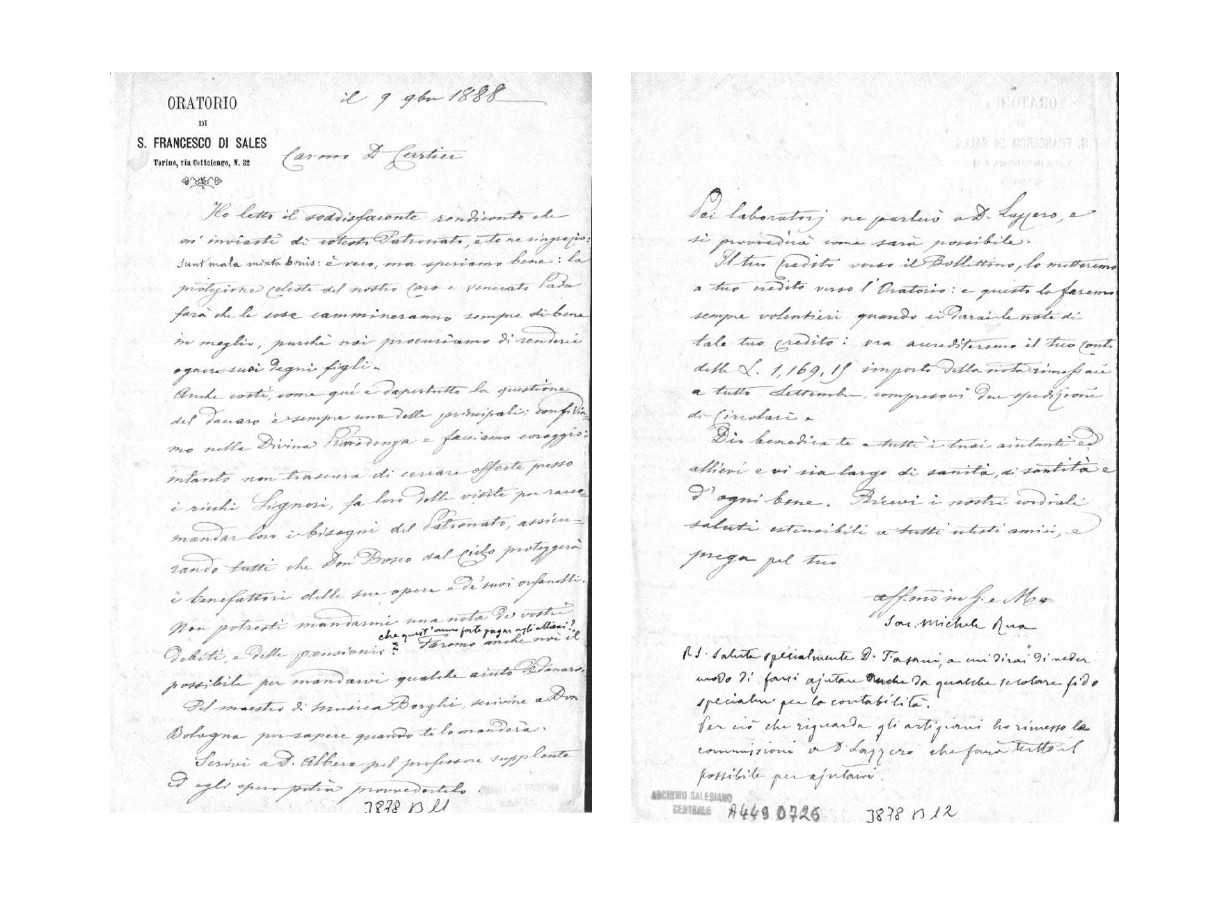 ORATORIO
DI
S. FRANCESCO DI SALES
Torino, via Cottolengo, N. 32
il 9 9bre 1888
Car.mo D. Cartier
Ho letto il soddisfacente rendiconto che
m'inviasti di cotesto Patronato, e te ne ringrazio:
sunt mala mixta bonis: è vero, ma speriamo bene: la
protezione celeste del nostro Caro e venerato Padre
farà che le cose cammineranno sempre di bene
in meglio, purchè noi procuriamo di renderci
ognora suoi degni figli.
Anche costì, come qui e dapertutto la questione
del danaro è sempre una delle principali: confidia-
mo nella Divina Provvidenza e facciamo coraggio:
intanto non trascura di cercare offerte presso
i ricchi Signori, fa loro delle visite per racco-
mandar loro i bisogni del Patronato, assicu-
rando tutti che Don Bosco dal Cielo proteggerà
i benefattori delle sue opere e de' suoi orfanelli.
Non potresti mandarmi una nota de' vostri
che quest'anno fate pagare agli allievi?
debiti, e delle pensioni Faremo anche noi il
possibile per mandarvi qualche aiuto di danaro.
Pel maestro di musica Borghi, scrivine a Don
Bologna per sapere quando te lo manderà.
Scrivi a D. Albera pel professore supplente
ed egli spero potrà provvedertelo.
3878 B 11
Pei laboratorj ne parlerò a D. Lazzero, e
si provvederà come sarà possibile.
Il tuo Credito verso il Bollettino, lo metteremo
a tuo credito verso l'Oratorio: e questo lo faremo
sempre volentieri quando ci darai le note di
tale tuo credito: ora accrediteremo il tuo Conto
delle L. 1,169,15 importo della nota rimessaci
a tutto Settembre compresovi due spedizioni
di Circolari.
Dio benedica te e tutti i tuoi aiutanti ed
allievi e vi sia largo di sanità, di santità e
d'ogni bene. Ricevi i nostri cordiali
saluti estensibili a tutti cotesti amici, e
prega pel tuo
aff.mo in G. e M.
Sac. Michele Rua
P.S. Saluta specialmente D. Fasani, a cui dirai di veder
modo di farsi ajutare anche da qualche scolare fido
specialm. per la contabilità.
Per ciò che riguarda gli artigiani ho rimesso le
commissioni a D. Lazzero che farà tutto il
possibile per ajutarvi.
ARCHIVIO SALESIANO
CENTRALE
A449 0726
3878 B 12